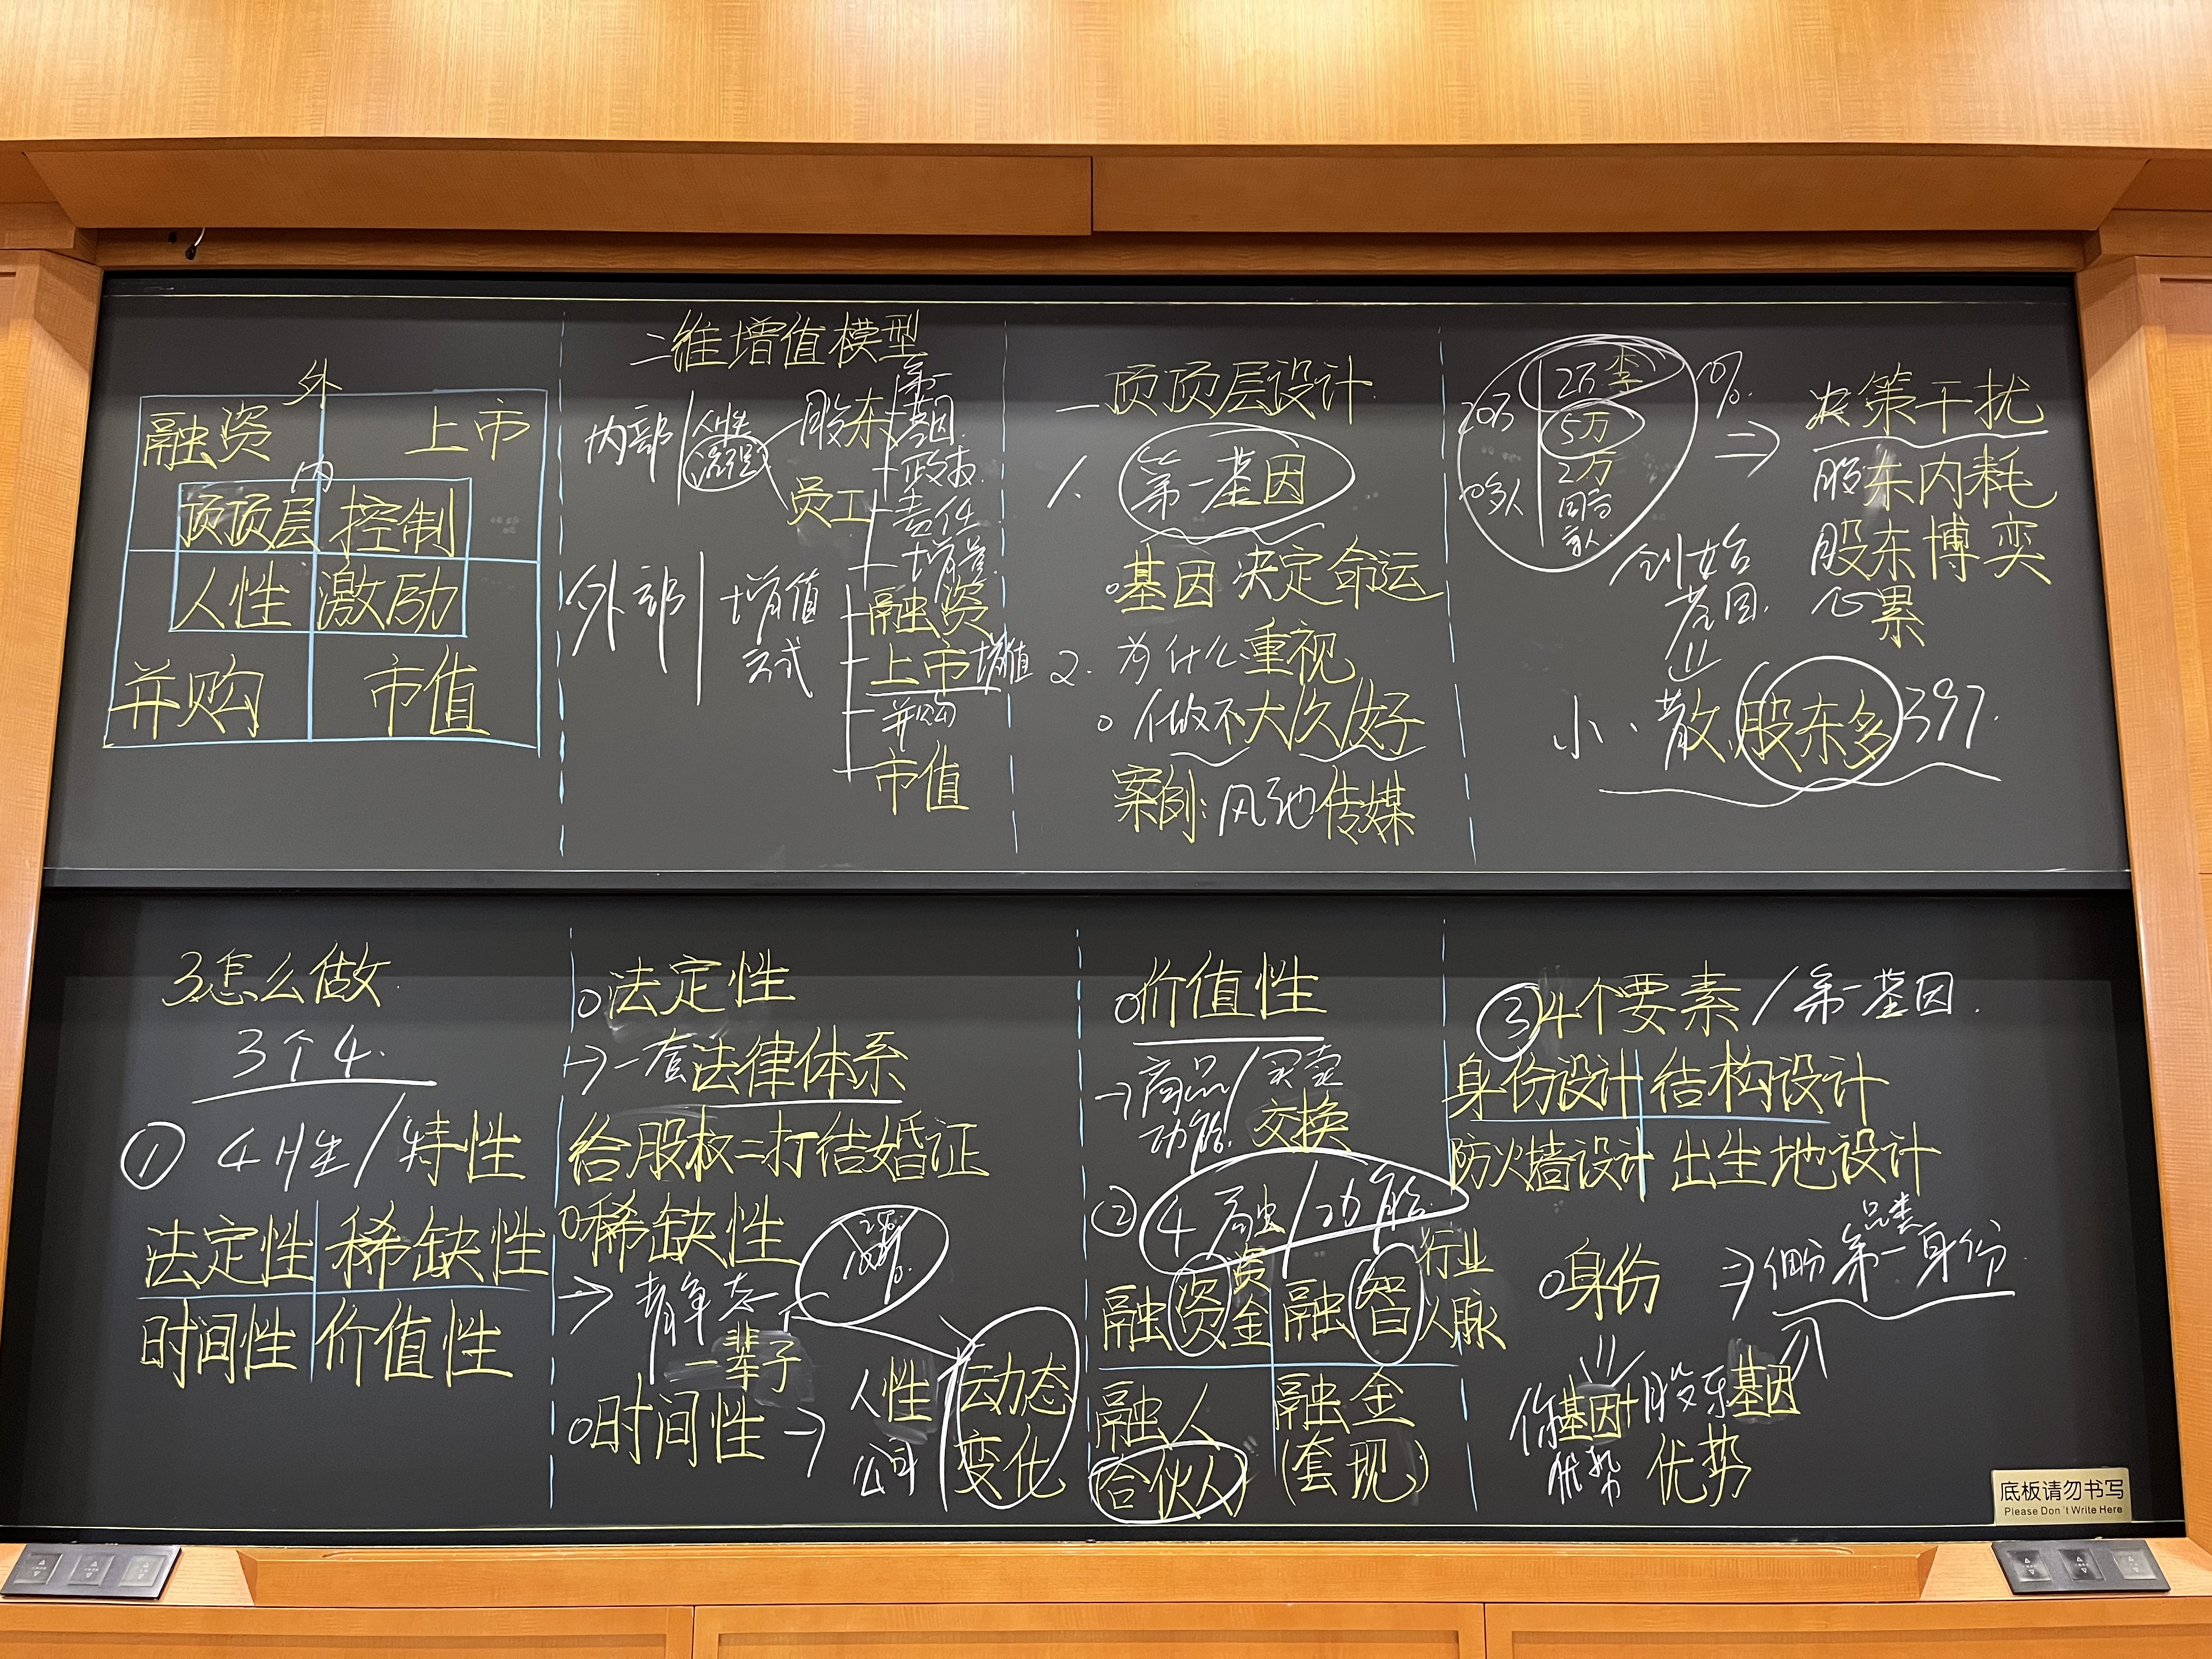 外
融资 上市
内
顶顶层 控制
人性 激励
并购 市值
二维增值模型
内部 人性
股东
第一
基因
员工
责任
增量
外部 增值
方式
融资
上市 增值
并购
市值
一 顶顶层设计
1、第一基因
基因决定命运
2. 为什么重视
做不大/久/好
案例:风驰传媒
2万 李
5万
2万
20万
10%
⇒
决策干扰
股东内耗
股东博奕
心累
创始
基因
小、散、股东多 397.
3怎么做.
3个4.
① 4性/特性
法定性 稀缺性
时间性 价值性
法定性
→一套法律体系
给股权=打结婚证
稀缺性
→静态
100%
一辈子
时间性→
人性
公司
动态
变化
价值性
→商品/买卖
功能 交换
② 4融/功能
融资 资金
融智 行业
人脉
融人
(合伙人)
融金
(套现)
③4个要素/第一基因.
身份设计 结构设计
防火墙设计 出生地设计
身份 ⇒细分第一身份
品类
你基因+股东基因
优势 优势
底板请勿书写
Please Don't Write Here